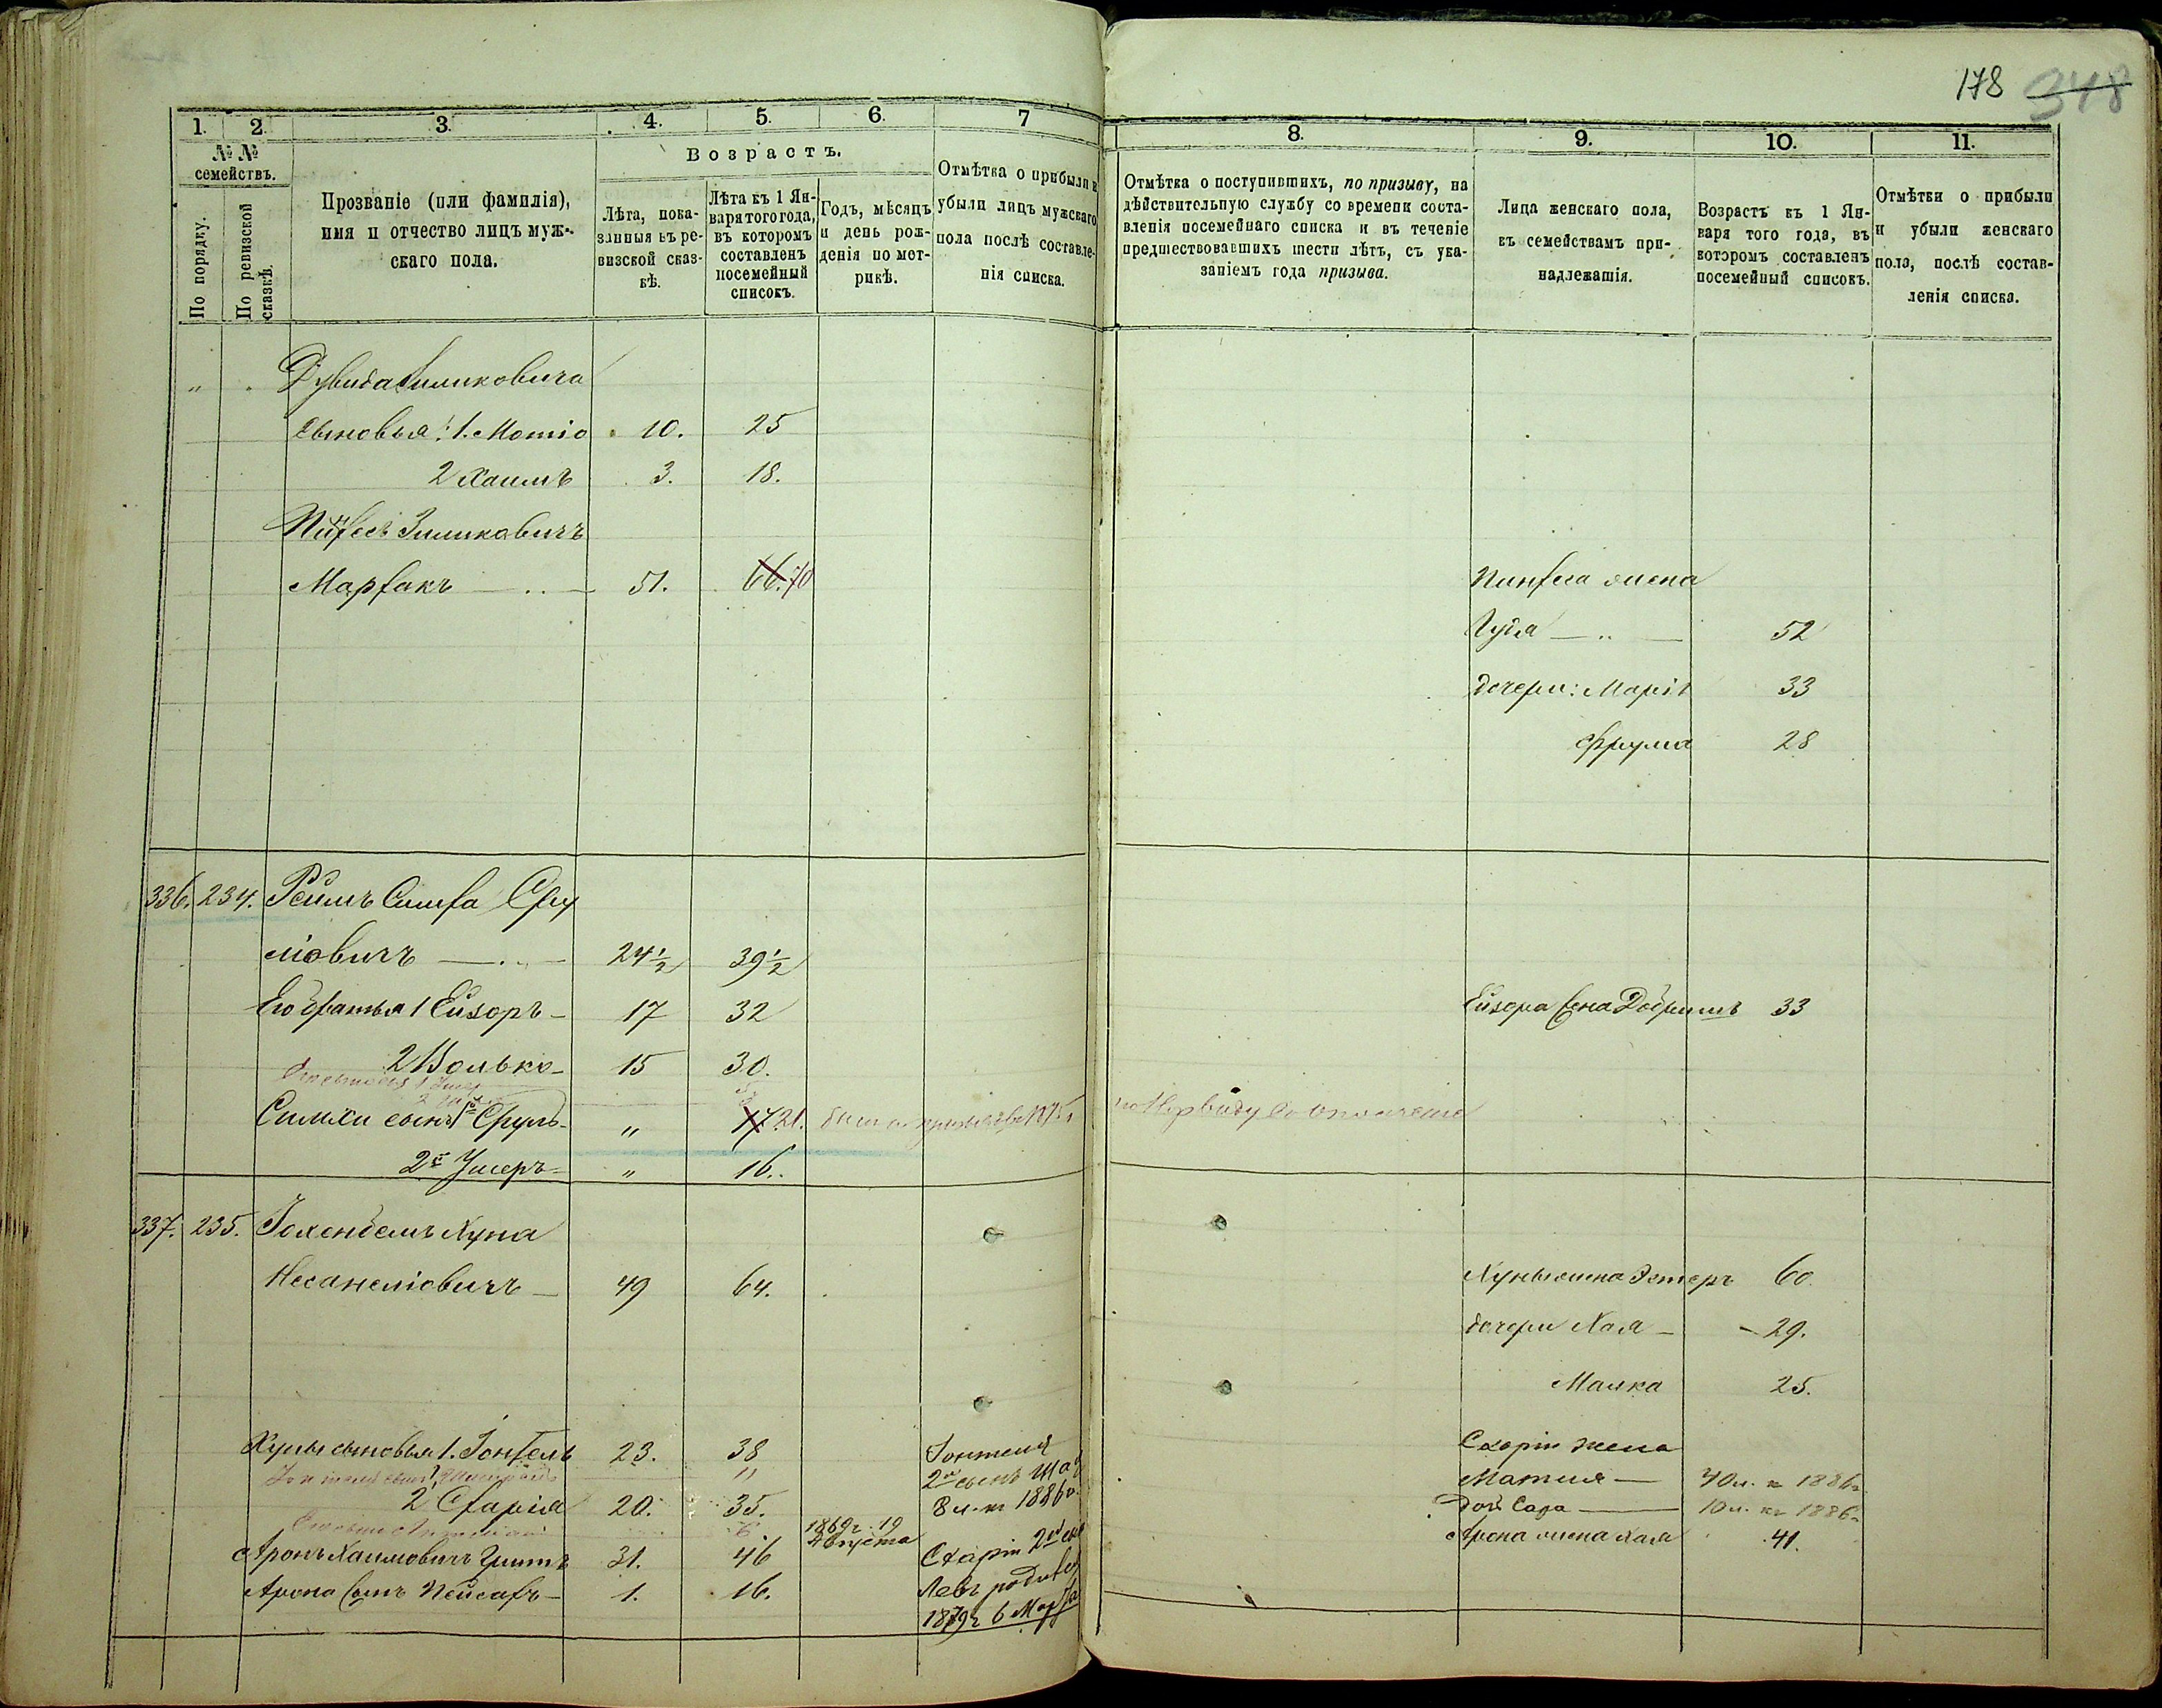 178 348
1. 2. 3. 4. 5. 6. 7
№ № семействъ.
По порядку.
По ревизской сказкѣ.
Прозваніе (или фамилія),
имя и отчество лицъ муж-
скаго пола.
Возрастъ.
Лѣта, пока-
занныя въ ре-
визской сказ-
кѣ.
Лѣта къ 1 Ян-
варя того года,
въ которомъ
составленъ
посемейный
списокъ.
Годъ, мѣсяцъ
и день рож-
денія по мет-
рикѣ.
Отмѣтка о прибыли и
убыли лицъ мужскаго
пола послѣ составле-
нія списка.
8. 9. 10. 11.
Отмѣтка о поступившихъ, по призыву, на
дѣйствительную службу со времени соста-
вленія посемейнаго списка и въ теченіе
предшествовавшихъ шести лѣтъ, съ ука-
заніемъ года призыва.
Лица женскаго пола,
къ семействамъ при-
надлежащія.
Возрастъ къ 1 Ян-
варя того года, въ
которомъ составленъ
посемейный списокъ.
Отмѣтки о прибыли
и убыли женскаго
пола, послѣ состав-
ленія списка.
" " Дувида Зимиковича
сыновья: 1. Мотіо 10. 25
2 Хаимъ 3. 18.
Пинхесъ Зимиковичъ
Мархакъ 51. 66. 70
Пинхеса жена
Гудя 52
дочери: Марія 33
Фрума 28
336. 234. Реимъ Симха Сру
ліовичъ 24½ 39½
Его братья 1 Ейзоръ 17 32 Ейзора жена Добришъ 33
2 Волько 15 30.
Симхи сынъ 1й Сруль " 17. 21.
2й Ушеръ " 16.
337. 235. Гохендель Хуна
Несанеліовичъ 49 64. Хуны жена Эстеръ 60.
дочери Хая 29.
Малка 25.
Хуны сыновья 1. 23. 38
2й сынъ
8 л. къ 1886 г.
2 Схарія 20. 35.
Схаріи жена
Матля 40 л. к 1886 г.
доч. Сара 10 л. къ 1886 г.
1869 г. 19
Августа
Аронъ Хаимовичъ 31. 46 Арона жена Хая 41.
Схаріи 2й сынъ
Арона сынъ Пейсахъ 1. 16.
Левъ родився
1879 г. 6 Марта